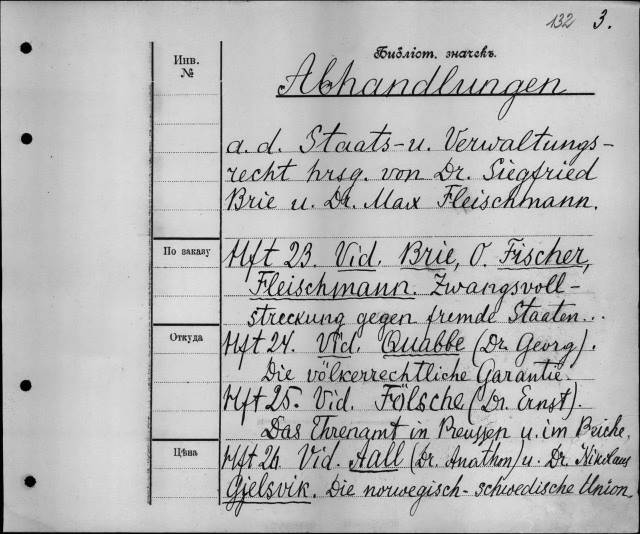 132 3.
Библіот. значекъ.
Инв.
№
Abhandlungen
a. d. Staats- u. Verwaltungs-
recht hrsg. von Dr. Siegfried
Brie u. Dr. Max Fleischmann.
По заказу
Hft 23. Vid. Brie, O. Fischer,
Fleischmann. Zwangsvoll-
streckung gegen fremde Staaten...
Откуда
Hft 24. Vid. Quabbe (Dr. Georg).
Die völkerrechtliche Garantie.
Hft 25. Vid. Fölsche (Dr. Ernst).
Das Ehrenamt in Preussen u. im Reiche.
Цѣна
Hft 26. Vid. Aall (Dr. Anathon) u. Dr. Nikolaus
Gjelsvik. Die norwegisch-schwedische Union.